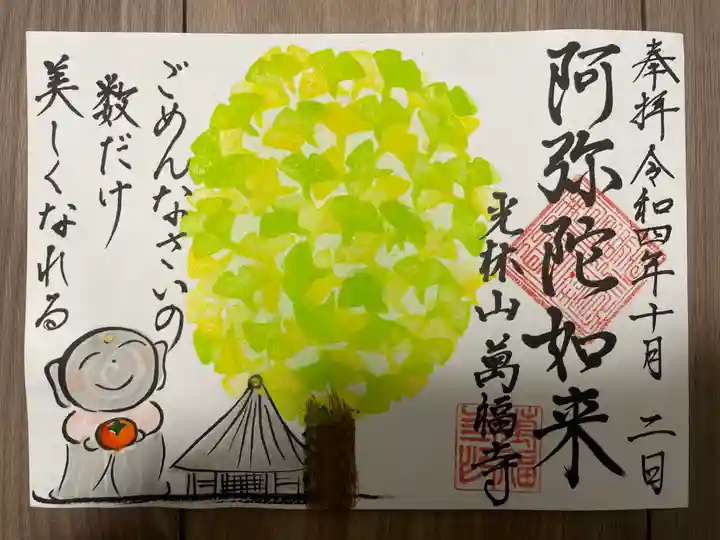 奉拝 令和四年十月 二日
阿弥陀如来
光林山 萬福寺
ごめんなさいの
数だけ
美しくなれる